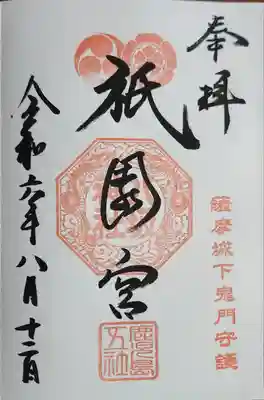 奉拝
薩摩城下鬼門守護
祇園宮
鹿児島五社
令和六年八月十二日